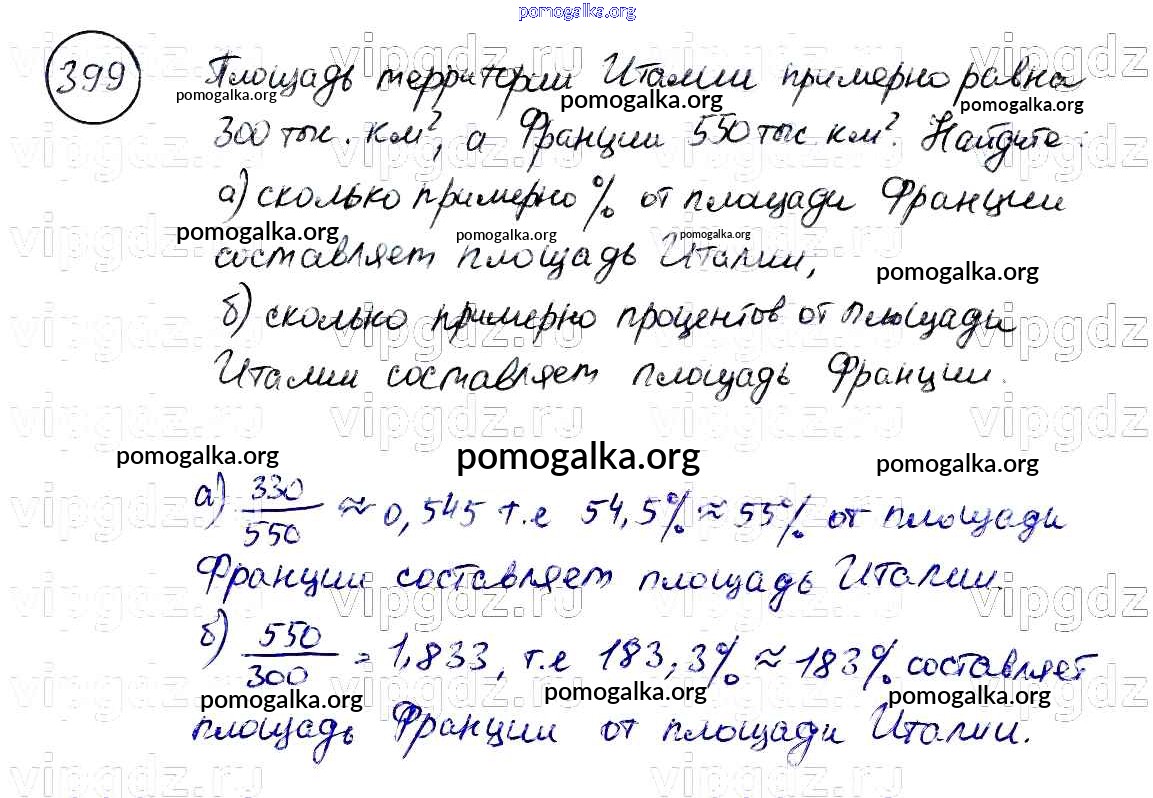 pomogalka.org
399 Площадь территории Италии примерно равна
pomogalka.org pomogalka.org pomogalka.org
300 тыс. км², а Франции 550 тыс км². Найдите:
а) сколько примерно % от площади Франции
pomogalka.org pomogalka.org pomogalka.org
составляет площадь Италии,
pomogalka.org
б) сколько примерно процентов от площади
Италии составляет площадь Франции.
pomogalka.org pomogalka.org pomogalka.org
а) 330/550 ≈ 0,545 т.е 54,5% ≈ 55% от площади
Франции составляет площадь Италии.
б) 550/300 = 1,833, т.е 183,3% ≈ 183% составляет
pomogalka.org pomogalka.org pomogalka.org
площадь Франции от площади Италии.
vipgdz.ru vipgdz.ru vipgdz.ru vipgdz